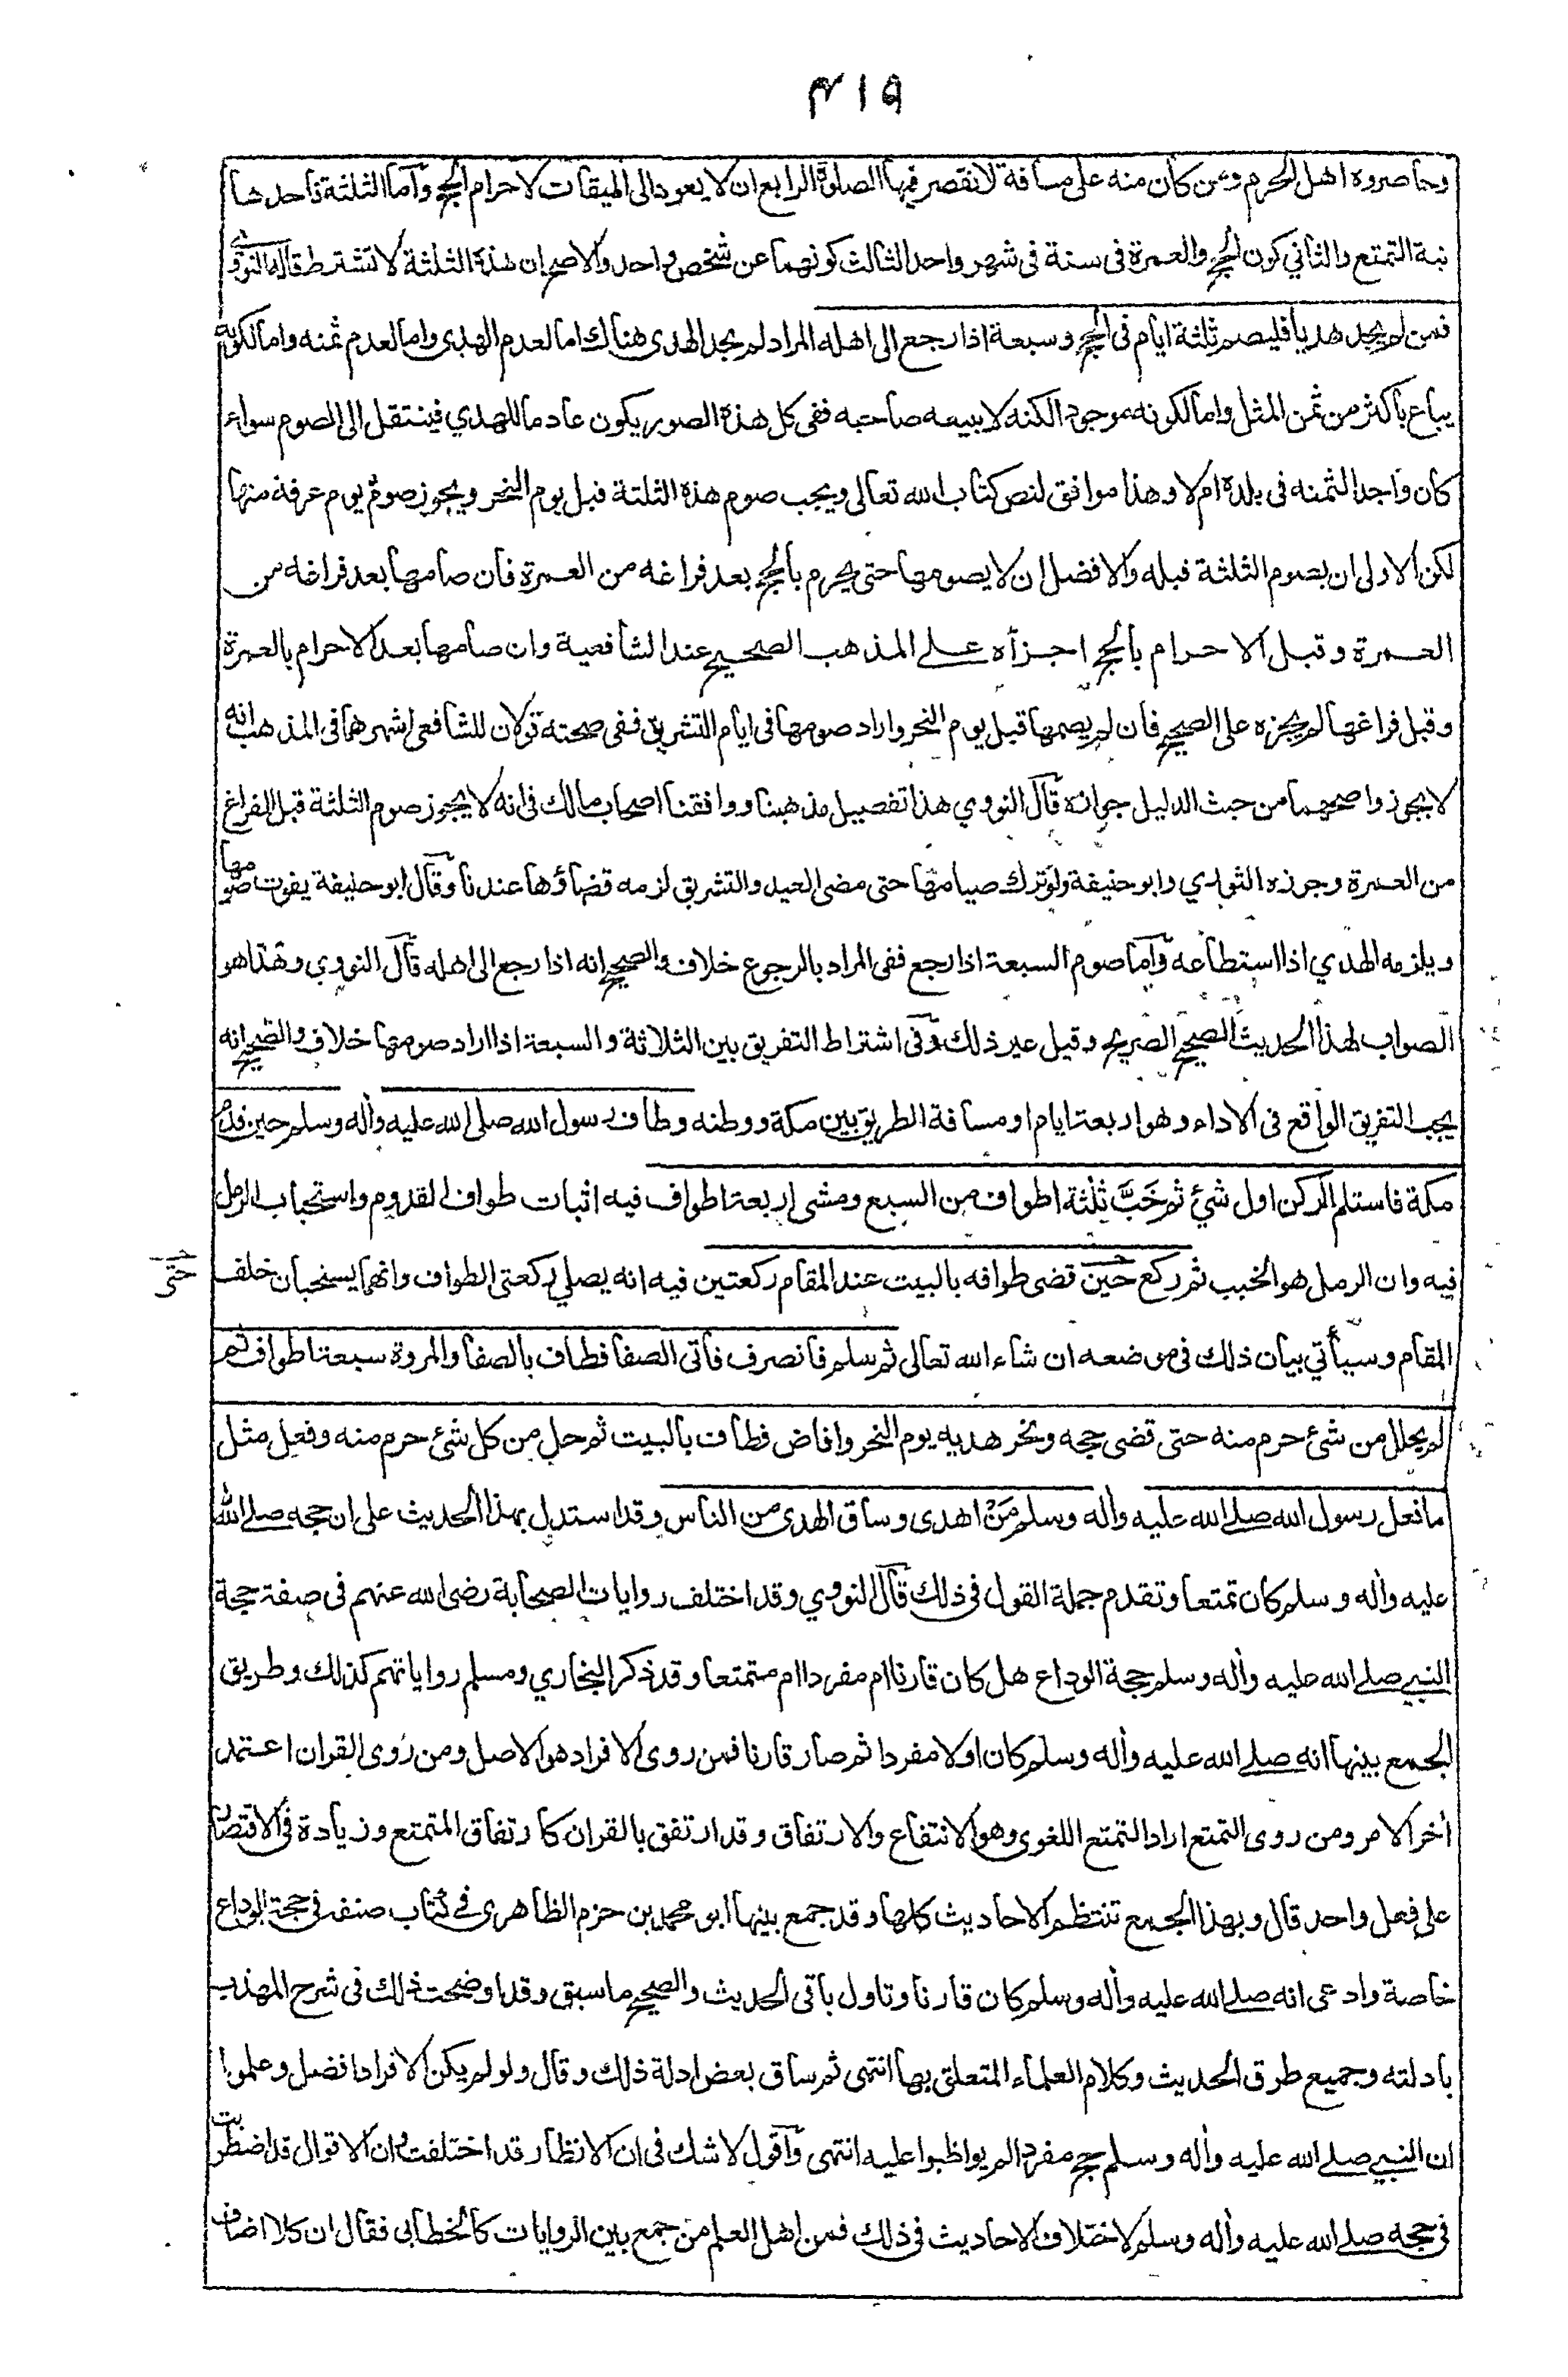 ٤١٩
وحاضروه اهل الحرم ومن كان منه على مسافة لا تقصر فيها الصلوة الرابع ان لا يعود الى الميقات لاحرام الحج وآما الثلثة فاحدها
نية التمتع والثاني كون الحج والعمرة فى سنة فى شهر واحد الثالث كونهما عن شخص واحد والاصح ان هذه الثلثة لا تشترط قاله النووي
فمن لم يجد هديا فليصم ثلثة ايام فى الحج وسبعة اذا رجع الى اهله المراد لم يجد الهدى هناك اما لعدم الهدى واما لعدم ثمنه واما لكونه
يباع باكثر من ثمن المثل واما لكونه موجودا لكنه لا يبيعه صاحبه ففى كل هذه الصور يكون عادما للهدي فينتقل الى الصوم سواء
كان واجدا لثمنه فى بلده ام لا وهذا موافق لنص كتاب الله تعالى ويجب صوم هذه الثلثة قبل يوم النحر ويجوز صوم يوم عرفة منها
لكن الاولى ان يصوم الثلثة قبله والافضل ان لا يصومها حتى يحرم بالحج بعد فراغه من العمرة فان صامها بعد فراغه من
العمرة وقبل الاحرام بالحج اجزأه على المذهب الصحيح عند الشافعية وان صامها بعد الاحرام بالعمرة
وقبل فراغها لم يجزه على الصحيح فان لم يصمها قبل يوم النحر واراد صومها فى ايام التشريق ففى صحته قولان للشافعى اشهرهما فى المذهب انه
لا يجوز واصحهما من حيث الدليل جوازه قآل النووي هذا تفصيل مذهبنا ووافقنا اصحاب مالك فى انه لا يجوز صوم الثلثة قبل الفراغ
من العمرة وجوزه الثوري وابو حنيفة ولو ترك صيامها حتى مضى العيد والتشريق لزمه قضاؤها عندنا وقآل ابو حنيفة يفوت صومها
ويلزمه الهدي اذا استطاعه وآما صوم السبعة اذا رجع ففى المراد بالرجوع خلاف والصحيح انه اذا رجع الى اهله قآل النووي وهذا هو
الصواب لهذا الحديث الصحيح الصريح وقيل غير ذلك وفى اشتراط التفريق بين الثلاثة والسبعة اذا اراد صومها خلاف والصحيح انه
يجب التفريق الواقع فى الاداء وهو اربعة ايام او مسافة الطريق بين مكة ووطنه وطاف رسول الله صلى الله عليه وأله وسلم حين قدم
مكة فاستلم الركن اول شئ ثم خَبَّ ثلثة اطواف من السبع ومشى اربعة اطواف فيه اثبات طواف القدوم واستحباب الرمل
فيه وان الرمل هو الخبب ثم ركع حين قضى طوافه بالبيت عند المقام ركعتين فيه انه يصلي ركعتى الطواف وانهما يستحبان خلف
حتى
المقام وسيأتي بيان ذلك فى موضعه ان شاء الله تعالى ثم سلم فانصرف فاتى الصفا فطاف بالصفا والمروة سبعة اطواف ثم
لم يحلل من شئ حرم منه حتى قضى حجه ونحر هديه يوم النحر وافاض فطاف بالبيت ثم حل من كل شئ حرم منه وفعل مثل
ما فعل رسول الله صلے الله عليه وأله وسلم مَنْ اهدى وساق الهدى من الناس وقد استدل بهذا الحديث على ان حجه صلے الله
عليه وأله وسلم كان تمتعا وتقدم جملة القول فى ذلك قآل النووي وقد اختلف روايات الصحابة رضى الله عنهم فى صفة حجة
النبى صلے الله عليه وأله وسلم حجة الوداع هل كان قارنا ام مفردا ام متمتعا وقد ذكر البخاري ومسلم رواياتهم كذلك وطريق
الجمع بينها انه صلے الله عليه وأله وسلم كان اولا مفردا ثم صار قارنا فمن روى الافراد هو الاصل ومن روى القران اعتمد
أخر الامر ومن روى التمتع اراد التمتع اللغوى وهو الانتفاع والارتفاق وقد ارتفق بالقران كارتفاق المتمتع وزيادة فى الاقتصار
على فعل واحد قال وبهذا الجمع تنتظم الاحاديث كلها وقد جمع بينها ابو محمد بن حزم الظاهرى فے كتاب صنفه فى حجة الوداع
خاصة وادعى انه صلے الله عليه وأله وسلم كان قارنا وتاول باقى الحديث والصحيح ما سبق وقد اوضحت ذلك فى شرح المهذب
بادلته وجميع طرق الحديث وكلام العلماء المتعلق بها انتهى ثم ساق بعض ادلة ذلك وقال ولو لم يكن الافراد افضل وعلموا
ان النبى صلے الله عليه وأله وسلم حج مفردا لم يواظبوا عليه انتهى وآقول لا شك فى ان الانظار قد اختلفت وان الاقوال قد اضطربت
فى حجه صلے الله عليه وأله وسلم لاختلاف الاحاديث فى ذلك فمن اهل العلم من جمع بين الروايات كالخطابى فقال ان كلا اضاف